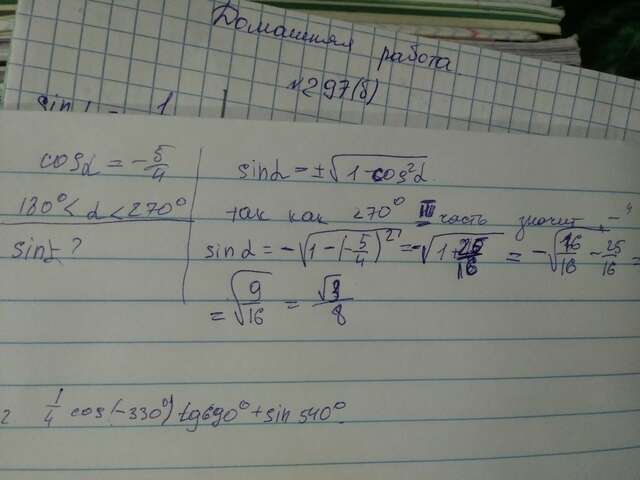 Домашняя работа
№297(б)
cosα = -5/4
180° < α < 270°
sinα - ?
sinα = ±√(1-cos²α).
так как 270° III часть значит „-"
sinα = -√(1-(-5/4)²) = -√(1+25/16) = -√(16/16 - 25/16) =
= √(9/16) = √3/8
2. 1/4 cos(-330°) tg690° + sin 540°